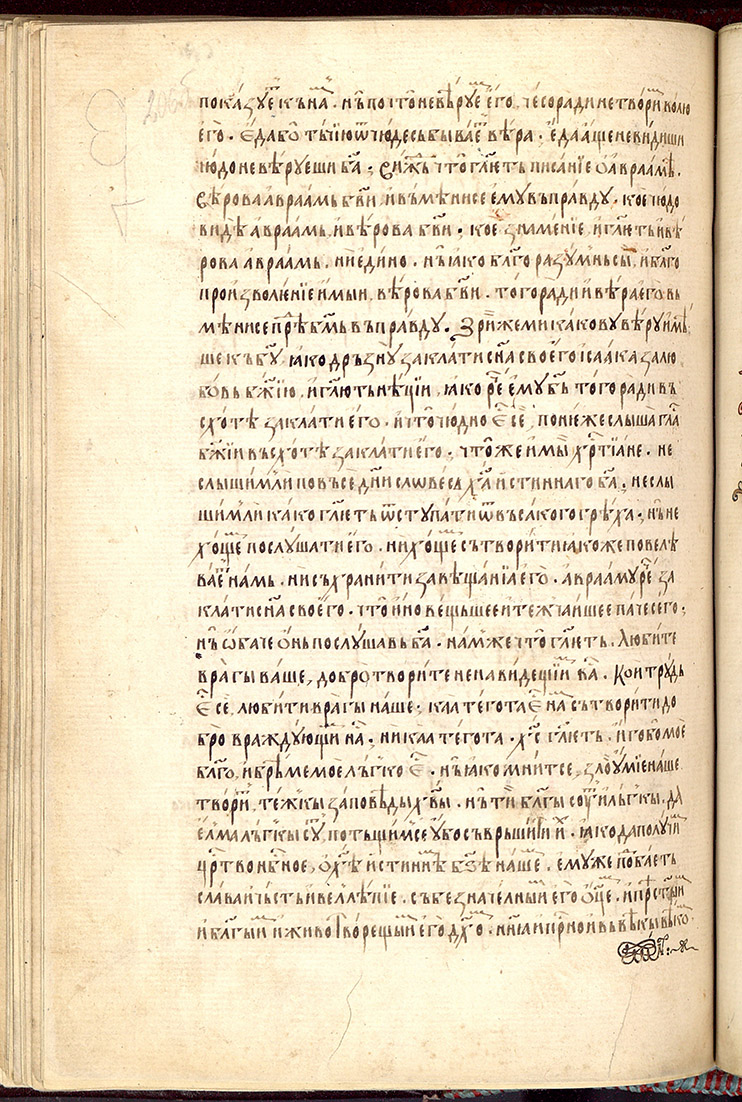 покаꙁꙋеⷮ къ наⷨ . нъ почто невѣрꙋеⷲ его . чесо ради не твориⷲ волю
его . еда бо тъчїю ѿ чюдесь бываеⷮ вѣра . еда аще не видиши
чюдо не вѣрꙋеши бг҃ꙋ . виждь что гл҃ють писанїе о авраамѣ .
вѣрова авраамь бг҃ви , и въмѣни се емꙋ въ правдꙋ . кое чюдо
видѣ авраамь , и вѣрова бг҃ви . кое ꙁнаменїе , и гл҃ють и вѣ
рова авраамь . ни едино . нъ ꙗко бл҃го раꙁꙋмьнь сы , и бл҃го
проиꙁволенїе имыи , вѣрова бг҃ви . того ради и вѣра его вь
мѣни се прѣⷣ бг҃мь въ правдꙋ . Зри же ми каковꙋ вѣрꙋ имѣ
ше къ бг҃ꙋ , ꙗко дръꙁнꙋ ꙁаклати сн҃а своего ісаака ꙁа лю
бовь бж҃їю . и гл҃ють нѣцїи , ꙗко реⷱ емꙋ бг҃ь того ради въ
схотѣ ꙁаклати его . и что чюдно еⷭ҇ се , понюже слыша гла
бж҃їи въсхотѣ ꙁаклати его . что же и мы хрⷭ҇тїане . не
слышим ли по въсе дн҃и словеса хв҃а истиннаго бг҃а . не слы
шим ли како гл҃ють ѿстꙋпати ѿ въсакого грѣха . нъ не
хощеⷨ послꙋшати его . ни хощеⷨ сътворити ꙗкоже повелѣ
ваеⷮ намь . ни съхранити ꙁавѣщанїа его . авраамꙋ реⷱ ꙁа
клати сн҃а своего . что ино вещьшее и тежчаишее паче сего .
нъ ѡбаче онь послꙋшавь бг҃а . нам же что гл҃ють . Любите
врагы ваше , добро творите ненавидещїиⷨ ваⷭ . Кои трꙋдь
еⷭ҇ се , любити врагы наше . каа тегота еⷭ҇ наⷨ сътворити до
бро враждꙋющиⷨ наⷨ . ни каа тегота . хс҃ гл҃ють . иго бо мое
бл҃го , и брѣме мое льгско еⷭ҇ . нъ ꙗко мнит се , ꙁлоꙋмїе наше
твориⷮ , тежкы ꙁаповѣды хв҃ы . нъ тїи бл҃гы сꙋⷮ и льгкы . да
елма льгкы сꙋⷮ , потьщим се ꙋбо съврьшити иⷯ . ꙗко да полꙋчиⷨ
црⷭ҇тво нбⷭ҇ное , о хѣ҃ истиннѣⷨ бꙁ҃ѣ нашеⷨ . емꙋже побаеть
слава и чьсть и велⷧлѣпїе . съ беꙁначелныⷨ его оц҃еⷨ . и прѣст҃ыиⷨ
и бл҃гыиⷨ и животворещыиⷨ его дх҃оⷨ . нн҃ꙗ и прⷭ҇но и въ вѣкы вѣкоⷨ .